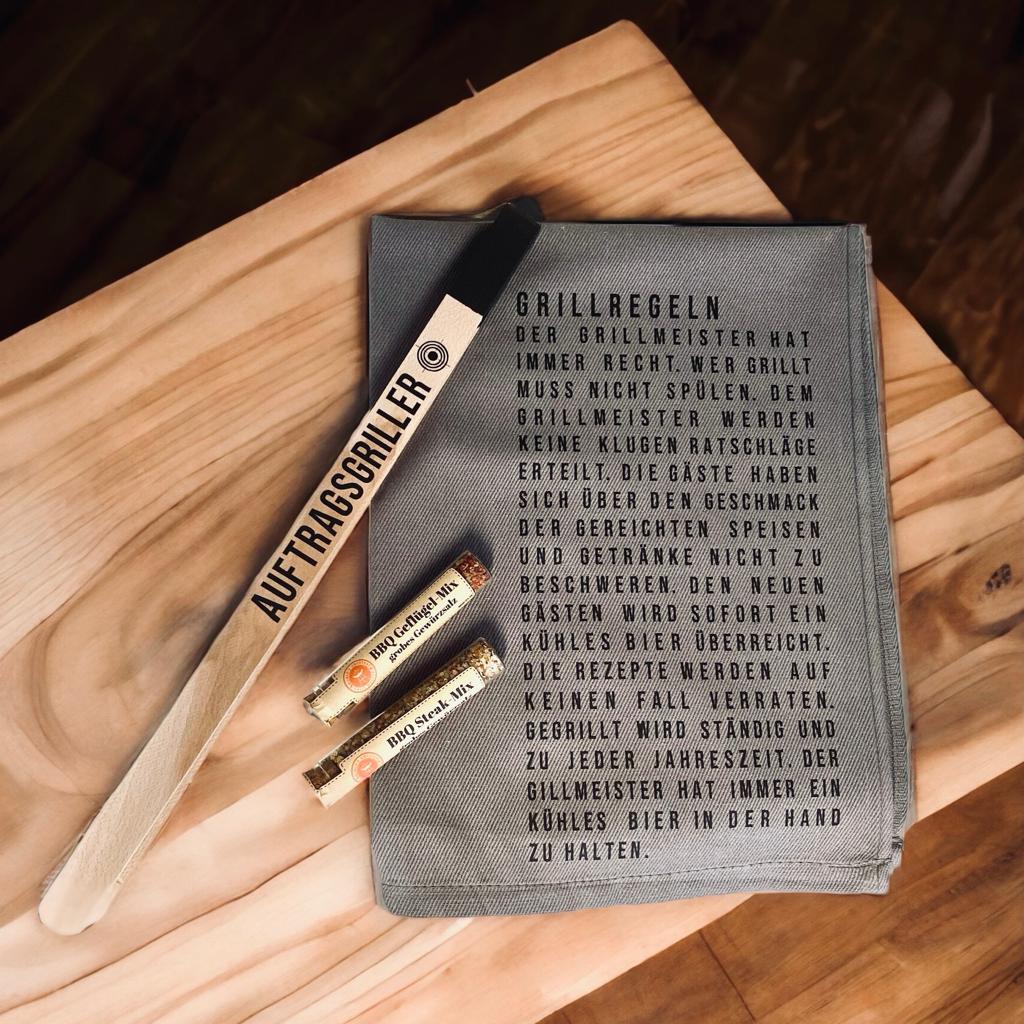 GRILLREGELN
DER GRILLMEISTER HAT
IMMER RECHT. WER GRILLT
MUSS NICHT SPÜLEN. DEM
GRILLMEISTER WERDEN
KEINE KLUGEN RATSCHLÄGE
ERTEILT. DIE GÄSTE HABEN
SICH ÜBER DEN GESCHMACK
DER GEREICHTEN SPEISEN
UND GETRÄNKE NICHT ZU
BESCHWEREN. DEN NEUEN
GÄSTEN WIRD SOFORT EIN
KÜHLES BIER ÜBERREICHT.
DIE REZEPTE WERDEN AUF
KEINEN FALL VERRATEN.
GEGRILLT WIRD STÄNDIG UND
ZU JEDER JAHRESZEIT. DER
GILLMEISTER HAT IMMER EIN
KÜHLES BIER IN DER HAND
ZU HALTEN.
AUFTRAGSGRILLER
BBQ Geflügel-Mix
grobes Gewürzsalz
BBQ Steak-Mix